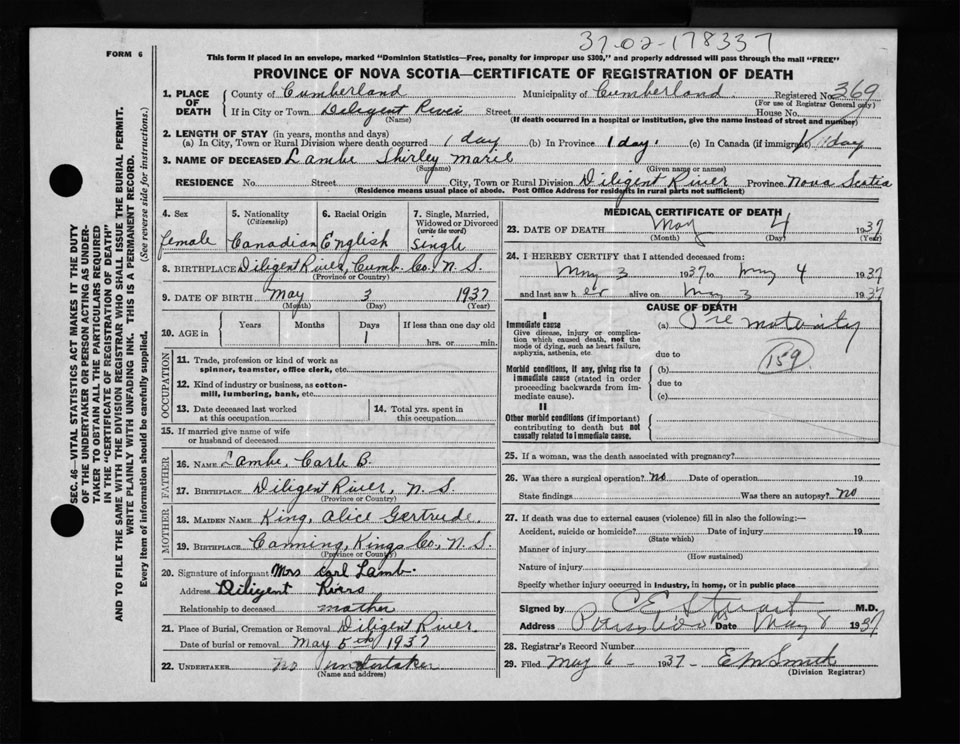 37-02-178337
FORM 6
This form if placed in an envelope, marked "Dominion Statistics—Free, penalty for improper use $300," and properly addressed will pass through the mail "FREE"
PROVINCE OF NOVA SCOTIA—CERTIFICATE OF REGISTRATION OF DEATH
1. PLACE OF DEATH County of Cumberland Municipality of Cumberland. Registered No. 369
(For use of Registrar General only)
If in City or Town Diligent River Street House No.
(Name) (If death occurred in a hospital or institution, give the name instead of street and number)
2. LENGTH OF STAY (in years, months and days)
(a) In City, Town or Rural Division where death occurred 1 day (b) In Province 1 day. (c) In Canada (if immigrant) 1 day
3. NAME OF DECEASED Lambe Shirley Marie
(Surname) (Given name or names)
RESIDENCE No. Street City, Town or Rural Division Diligent River Province Nova Scotia
(Residence means usual place of abode. Post Office Address for residents in rural parts not sufficient)
4. Sex 5. Nationality (Citizenship) 6. Racial Origin 7. Single, Married, Widowed or Divorced (write the word)
female Canadian English Single
8. BIRTHPLACE Diligent River, Cumb. Co., N. S.
(Province or Country)
9. DATE OF BIRTH May 3 1937
(Month) (Day) (Year)
10. AGE in Years Months Days If less than one day old
1 hrs. or min.
OCCUPATION
11. Trade, profession or kind of work as
spinner, teamster, office clerk, etc.
12. Kind of industry or business, as cotton-
mill, lumbering, bank, etc.
13. Date deceased last worked at this occupation 14. Total yrs. spent in this occupation
15. If married give name of wife
or husband of deceased
FATHER
16. NAME Lambe, Carle B.
17. BIRTHPLACE Diligent River, N. S.
(Province or Country)
MOTHER
18. MAIDEN NAME King, Alice Gertrude.
19. BIRTHPLACE Canning, Kings Co., N. S.
(Province or Country)
20. Signature of informant Mrs Carl Lamb.
Address Diligent Rivers
Relationship to deceased mother
21. Place of Burial, Cremation or Removal Diligent River.
Date of burial or removal May 5th 1937
22. UNDERTAKER no undertaker
(Name and address)
MEDICAL CERTIFICATE OF DEATH
23. DATE OF DEATH May 4 1937
(Month) (Day) (Year)
24. I HEREBY CERTIFY that I attended deceased from:
May 3 1937 to May 4 1937
and last saw her alive on May 3 1937
CAUSE OF DEATH
I
Immediate cause (a) Pre maturity
Give disease, injury or complica-
tion which caused death, not the
mode of dying, such as heart failure,
asphyxia, asthenia, etc. due to
Morbid conditions, if any, giving rise to (b) 159
immediate cause (stated in order due to
proceeding backwards from im-
mediate cause). (c)
II
Other morbid conditions (if important)
contributing to death but not
causally related to immediate cause.
25. If a woman, was the death associated with pregnancy?
26. Was there a surgical operation? No Date of operation 19
State findings Was there an autopsy? No
27. If death was due to external causes (violence) fill in also the following:—
Accident, suicide or homicide? Date of injury 19
(State which)
Manner of injury
(How sustained)
Nature of injury
Specify whether injury occurred in industry, in home, or in public place
Signed by C E Stuart M.D.
Address Parrsboro NS Date May 1937
28. Registrar's Record Number
29. Filed May 6 - 1937 - E M Smith
(Division Registrar)
SEC. 46—VITAL STATISTICS ACT MAKES IT THE DUTY
OF THE UNDERTAKER OR PERSON ACTING AS UNDER-
TAKER TO OBTAIN ALL THE PARTICULARS REQUIRED
IN THE "CERTIFICATE OF REGISTRATION OF DEATH"
AND TO FILE THE SAME WITH THE DIVISION REGISTRAR WHO SHALL ISSUE THE BURIAL PERMIT.
WRITE PLAINLY WITH UNFADING INK. THIS IS A PERMANENT RECORD.
Every item of information should be carefully supplied. (See reverse side for instructions.)